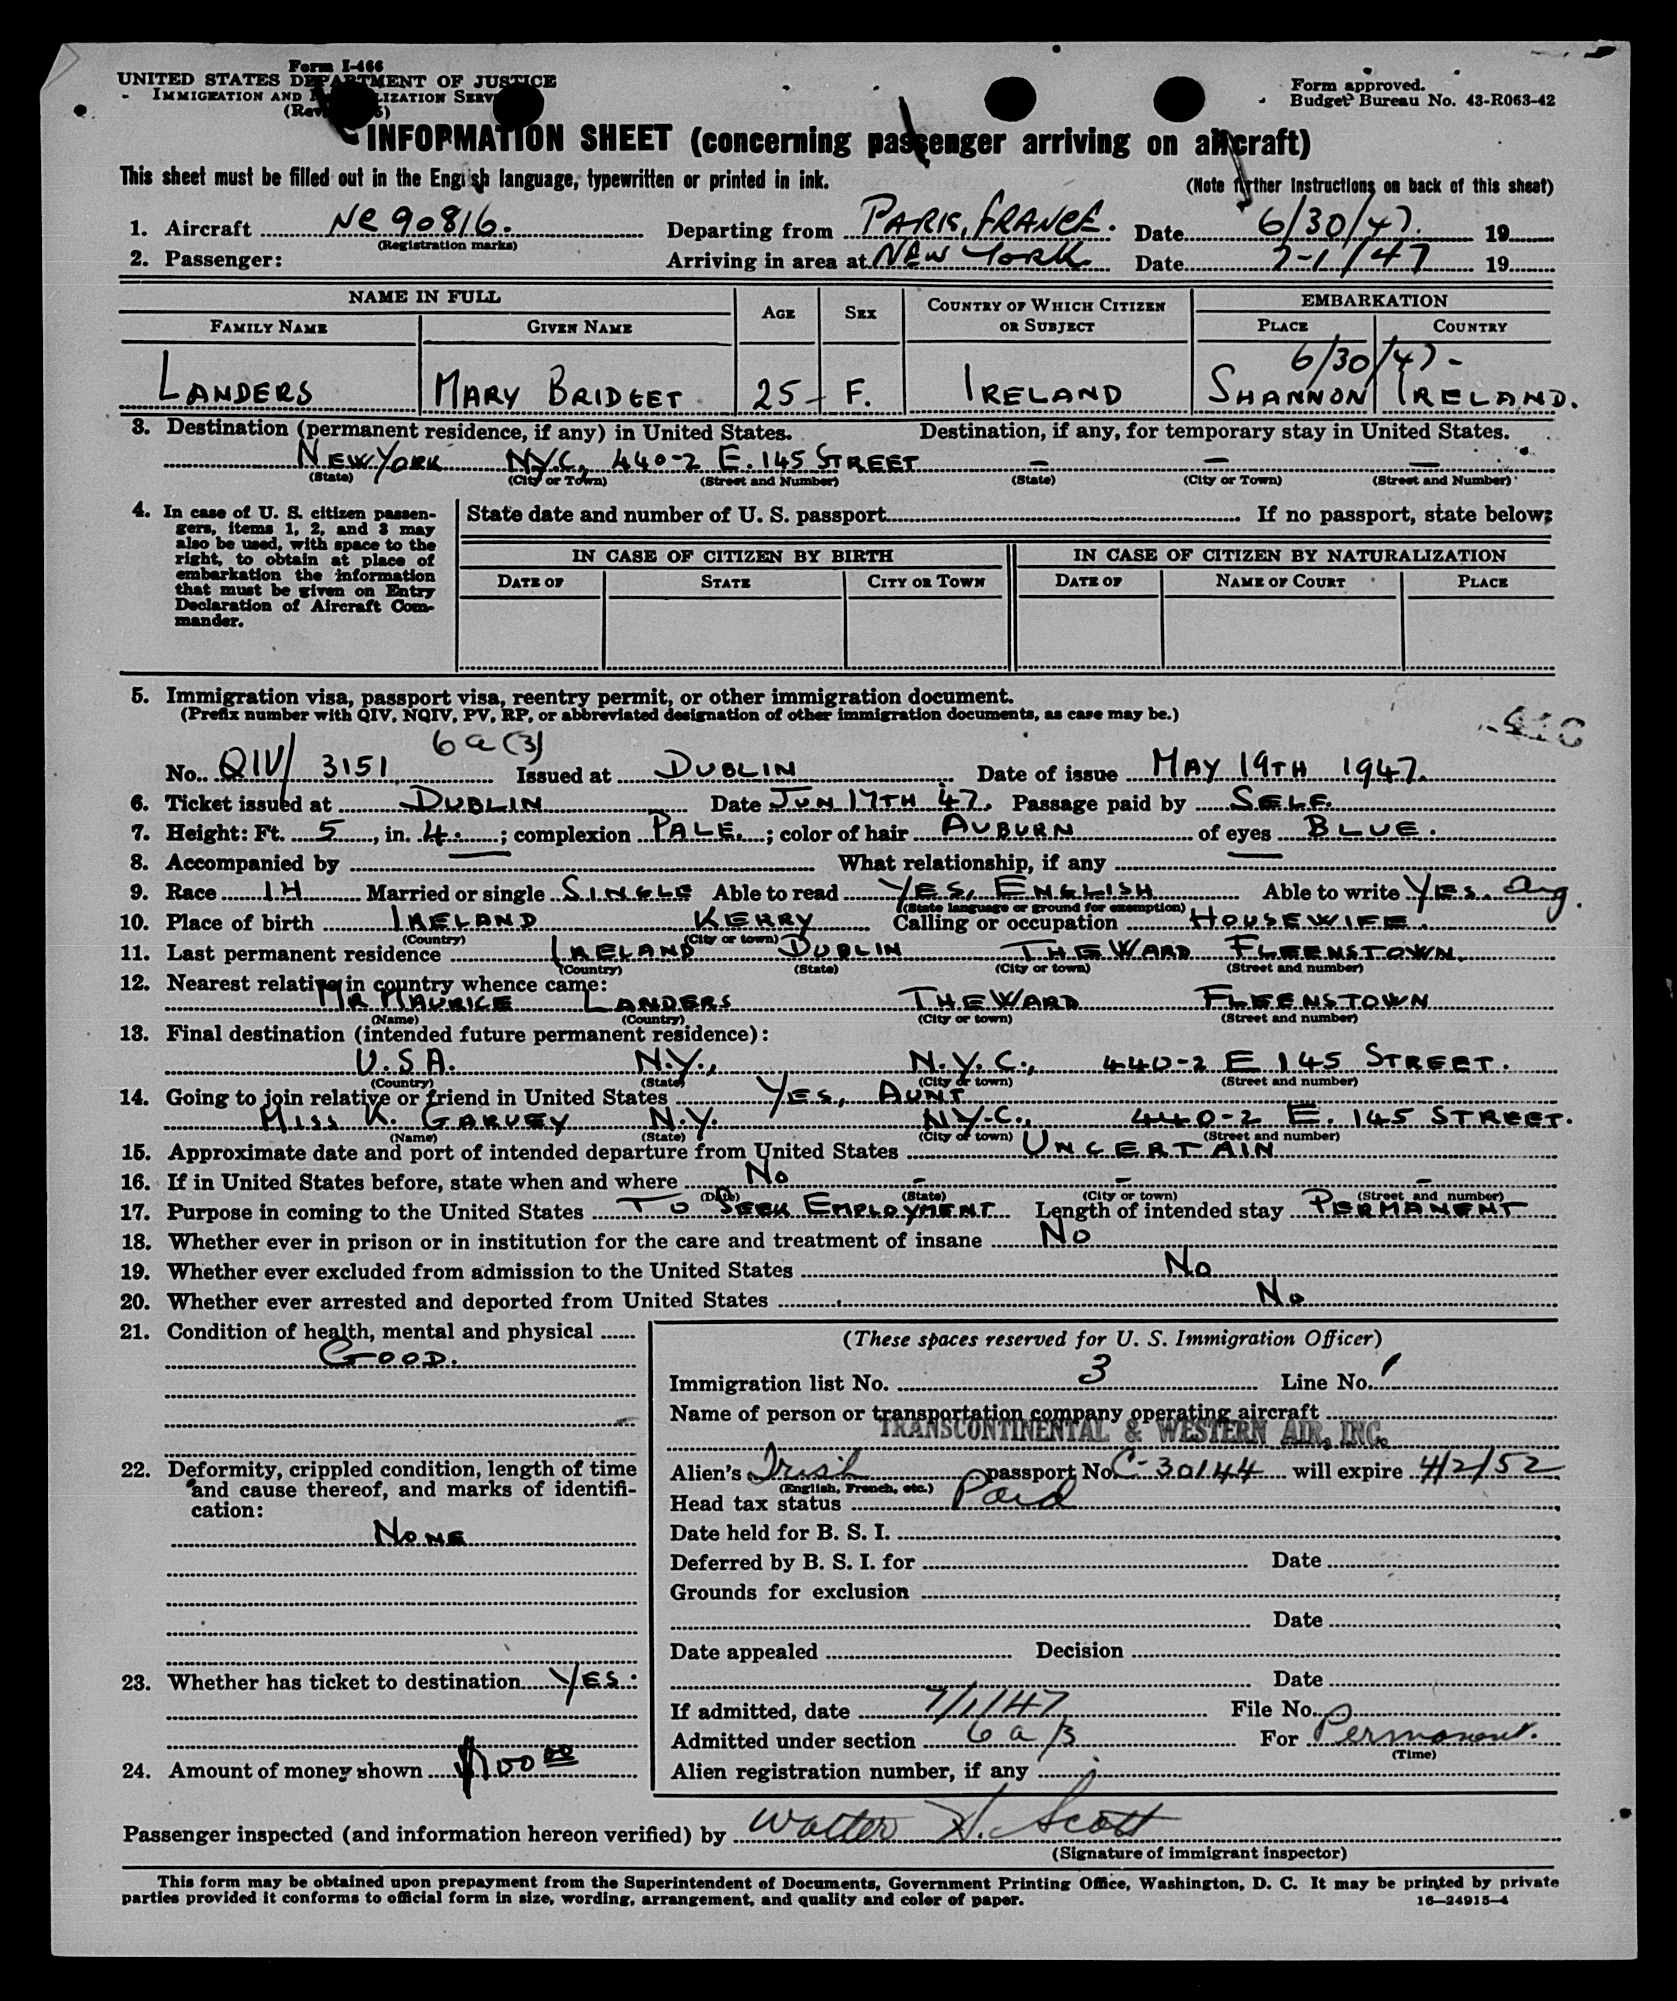 Form I-466
UNITED STATES DEPARTMENT OF JUSTICE
IMMIGRATION AND NATURALIZATION SERVICE
Form approved.
Budget Bureau No. 43-R063-42
INFORMATION SHEET (concerning passenger arriving on aircraft)
This sheet must be filled out in the English language, typewritten or printed in ink.
(Note further instructions on back of this sheet)
1. Aircraft NC 90816. Departing from PARIS, FRANCE. Date 6/30/47. 19
(Registration marks)
2. Passenger: Arriving in area at NEW YORK Date 7-1/47 19
NAME IN FULL AGE SEX COUNTRY OF WHICH CITIZEN OR SUBJECT EMBARKATION
FAMILY NAME GIVEN NAME PLACE COUNTRY
6/30/47-
LANDERS MARY BRIDGET 25 F. IRELAND SHANNON IRELAND.
3. Destination (permanent residence, if any) in United States. Destination, if any, for temporary stay in United States.
NEW YORK N.Y.C., 440-2 E. 145 STREET – – –
(State) (City or Town) (Street and Number) (State) (City or Town) (Street and Number)
4. In case of U. S. citizen passengers, items 1, 2, and 3 may also be used, with space to the right, to obtain at place of embarkation the information that must be given on Entry Declaration of Aircraft Commander.
State date and number of U. S. passport If no passport, state below:
IN CASE OF CITIZEN BY BIRTH IN CASE OF CITIZEN BY NATURALIZATION
DATE OF STATE CITY OR TOWN DATE OF NAME OF COURT PLACE
5. Immigration visa, passport visa, reentry permit, or other immigration document.
(Prefix number with QIV, NQIV, PV, RP, or abbreviated designation of other immigration documents, as case may be.)
6a(3)
No. QIV/ 3151 Issued at DUBLIN Date of issue MAY 19TH 1947.
6. Ticket issued at DUBLIN Date JUN 17TH 47. Passage paid by SELF.
7. Height: Ft. 5, in. 4.; complexion PALE.; color of hair AUBURN of eyes BLUE.
8. Accompanied by — What relationship, if any —
9. Race IH Married or single SINGLE Able to read YES, ENGLISH Able to write YES.
(State language or ground for exemption)
10. Place of birth IRELAND KERRY Calling or occupation HOUSEWIFE.
(Country) (City or town)
11. Last permanent residence IRELAND DUBLIN THE WARD FLEENSTOWN.
(Country) (State) (City or town) (Street and number)
12. Nearest relative in country whence came:
MR MAURICE LANDERS THE WARD FLEENSTOWN
(Name) (Country) (City or town) (Street and number)
13. Final destination (intended future permanent residence):
U.S.A. N.Y., N.Y.C., 440-2 E 145 STREET.
(Country) (State) (City or town) (Street and number)
14. Going to join relative or friend in United States YES, AUNT
MISS K. GARVEY N.Y. N.Y.C., 440-2 E. 145 STREET.
(Name) (State) (City or town) (Street and number)
15. Approximate date and port of intended departure from United States UNCERTAIN
16. If in United States before, state when and where NO – – –
(Date) (State) (City or town) (Street and number)
17. Purpose in coming to the United States TO SEEK EMPLOYMENT Length of intended stay PERMANENT
18. Whether ever in prison or in institution for the care and treatment of insane NO
19. Whether ever excluded from admission to the United States NO
20. Whether ever arrested and deported from United States NO
21. Condition of health, mental and physical
GOOD.
22. Deformity, crippled condition, length of time and cause thereof, and marks of identification:
NONE
23. Whether has ticket to destination YES:
24. Amount of money shown $100 00
(These spaces reserved for U. S. Immigration Officer)
Immigration list No. 3 Line No. 1
Name of person or transportation company operating aircraft
TRANSCONTINENTAL & WESTERN AIR, INC.
Alien's Irish passport No. C-30144 will expire 4/2/52
(English, French, etc.)
Head tax status Paid
Date held for B. S. I.
Deferred by B. S. I. for Date
Grounds for exclusion
Date
Date appealed Decision
Date
If admitted, date 7/1/47 File No.
Admitted under section 6 a/3 For Permanent.
(Time)
Alien registration number, if any
Passenger inspected (and information hereon verified) by Walter H. Scott
(Signature of immigrant inspector)
This form may be obtained upon prepayment from the Superintendent of Documents, Government Printing Office, Washington, D. C. It may be printed by private
parties provided it conforms to official form in size, wording, arrangement, and quality and color of paper. 16—24915-4